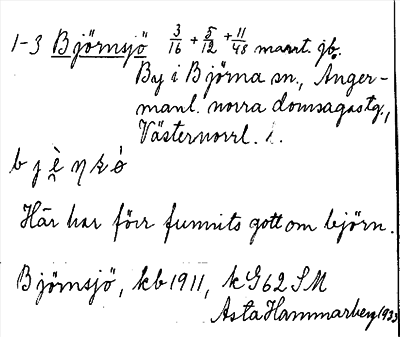 1-3 Björnsjö 3/16 + 5/12 + 11/48 mant. jb.
By i Björna sn., Ånger-
manl. norra domsagas tg.,
Västernorrl. l.
Här har förr funnits gott om björn.
Björnsjö, kb 1911, k G62 SM
Asta Hammarberg 1933